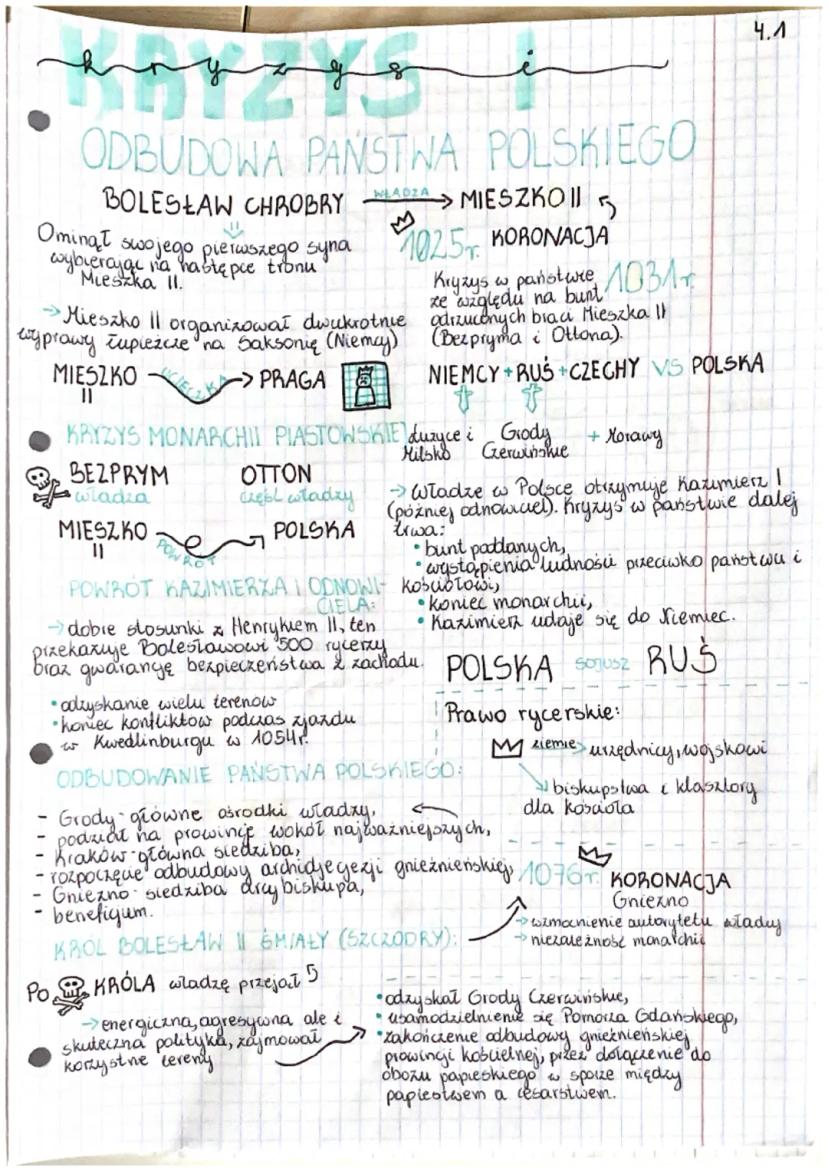 4.1
KRYZYS I
kryzys i
ODBUDOWA PAŃSTWA POLSKIEGO
BOLESŁAW CHROBRY WŁADZA → MIESZKO II
Ominął swojego pierwszego syna
wybierając na następcę tronu
Mieszka II.
1025r. KORONACJA
→ Mieszko II organizował dwukrotnie
wyprawy łupieżcze na Saksonię (Niemcy)
Kryzys w państwie 1031r.
ze względu na bunt
odrzuconych braci Mieszka II
(Bezpryma i Ottona).
MIESZKO II UCIECZKA → PRAGA
NIEMCY + RUŚ + CZECHY VS POLSKA
Łużyce i Milsko
Grody Czerwińskie
+ Morawy
KRYZYS MONARCHII PIASTOWSKIEJ
BEZPRYM OTTON
władza część władzy
MIESZKO II POWRÓT → POLSKA
→ Władze w Polsce otrzymuje Kazimierz I
(później odnowiciel). Kryzys w państwie dalej
trwa:
• bunt poddanych,
• wystąpienia ludności przeciwko państwu i
kościołowi,
• koniec monarchii,
• Kazimierz udaje się do Niemiec.
POWRÓT KAZIMIERZA I ODNOWI-
CIELA:
→ dobre stosunki z Henrykiem II, ten
przekazuje Bolesławowi 500 rycerzy
oraz gwarancję bezpieczeństwa z zachodu.
• odzyskanie wielu terenów
• koniec konfliktów podczas zjazdu
w Kwedlinburgu w 1054r.
POLSKA sojusz RUŚ
Prawo rycerskie:
ziemie → urzędnicy, wojskowi
↘ biskupstwa i klasztory
dla kościoła
ODBUDOWANIE PAŃSTWA POLSKIEGO:
- Grody - główne ośrodki władzy,
- podział na prowincje wokół najważniejszych,
- Kraków - główna siedziba,
- rozpoczęcie odbudowy archidjecezji gnieźnieńskiej,
- Gniezno - siedziba arcybiskupa,
- beneficjum.
KRÓL BOLESŁAW II ŚMIAŁY (SZCZODRY):
1076r. KORONACJA
Gniezno
→ wzmocnienie autorytetu władcy
→ niezależność monarchii
Po KRÓLA władzę przejął
→ energiczna, agresywna ale i
skuteczna polityka, zajmował
korzystne tereny
• odzyskał Grody Czerwińskie,
• usamodzielnienie się Pomorza Gdańskiego,
• zakończenie odbudowy gnieźnieńskiej
prowincji kościelnej, przez dołączenie do
obozu papieskiego w sporze między
papiestwem a cesarstwem.